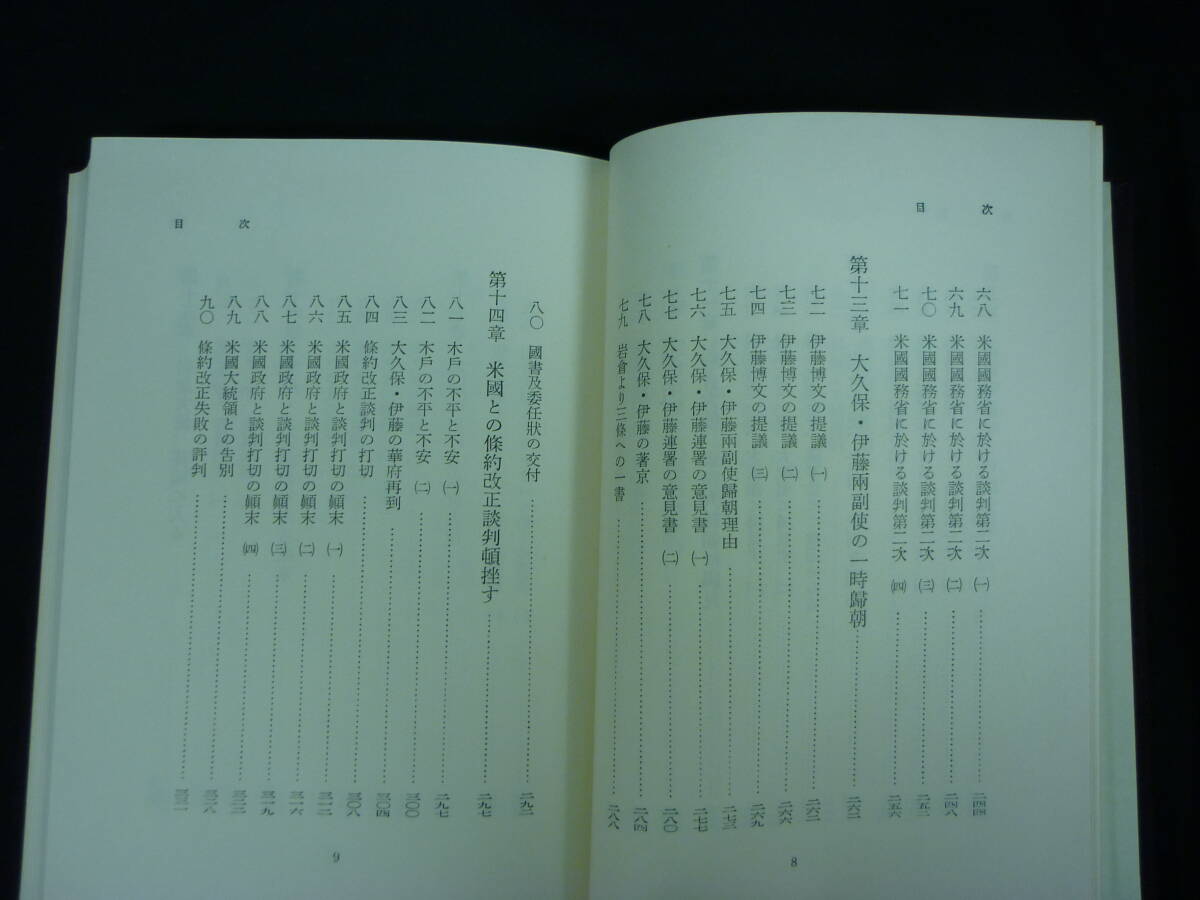 目次
六八 米國國務省に於ける談判第二次 ㈠ 二四四
六九 米國國務省に於ける談判第二次 ㈡ 二四八
七〇 米國國務省に於ける談判第二次 ㈢ 二五二
七一 米國國務省に於ける談判第二次 ㈣ 二五六
第十三章 大久保・伊藤兩副使の一時歸朝 二六二
七二 伊藤博文の提議 ㈠ 二六二
七三 伊藤博文の提議 ㈡ 二六六
七四 伊藤博文の提議 ㈢ 二六九
七五 大久保・伊藤兩副使歸朝理由 二七三
七六 大久保・伊藤連署の意見書 ㈠ 二七七
七七 大久保・伊藤連署の意見書 ㈡ 二八〇
七八 大久保・伊藤の著京 二八四
七九 岩倉より三條への一書 二八八
8
目次
八〇 國書及委任狀の交付 二九二
第十四章 米國との條約改正談判頓挫す 二九七
八一 木戶の不平と不安 ㈠ 二九七
八二 木戶の不平と不安 ㈡ 三〇〇
八三 大久保・伊藤の華府再到 三〇四
八四 條約改正談判の打切 三〇八
八五 米國政府と談判打切の顚末 ㈠ 三一二
八六 米國政府と談判打切の顚末 ㈡ 三一六
八七 米國政府と談判打切の顚末 ㈢ 三一九
八八 米國政府と談判打切の顚末 ㈣ 三二三
八九 米國大統領との告別 三二八
九〇 條約改正失敗の評判 三三一
9